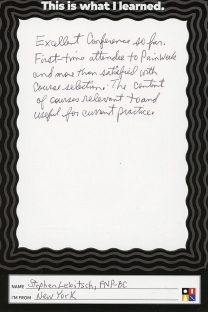 This is what I learned.
Excellent Conference so far.
First-time attendee to PainWeek
and more than satisfied with
course selection. The content
of courses relevant to and
useful for current practice.
NAME Stephen Lebitsch, FNP-BC
I'M FROM New York